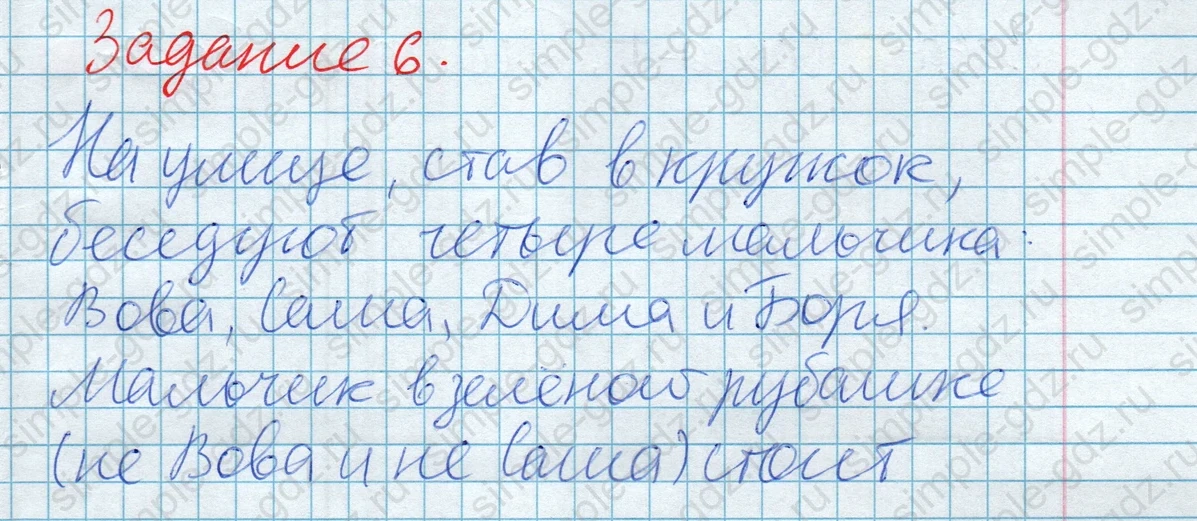 Задание 6.
На улице, став в кружок,
беседуют четыре мальчика:
Вова, Саша, Дима и Боря.
Мальчик в зелёной рубашке
(не Вова и не Саша) стоит
simple-gdz.ru